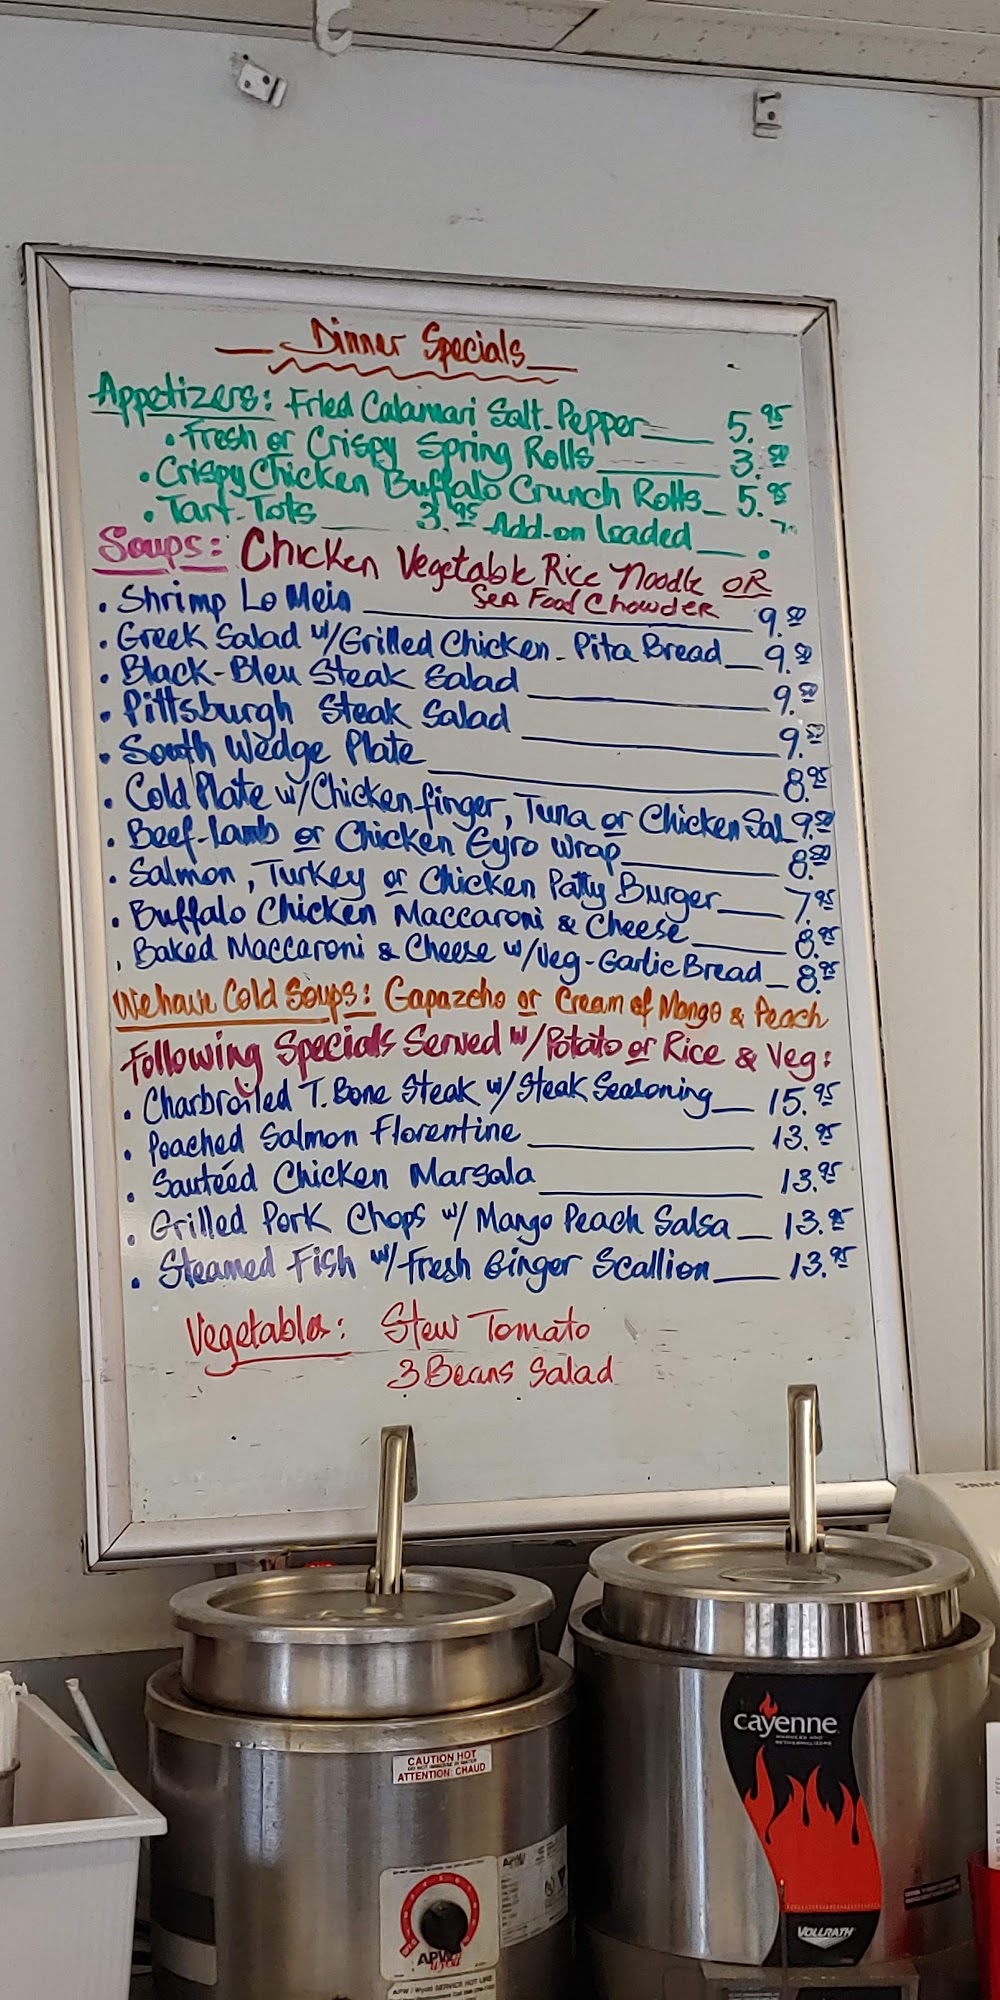 Dinner Specials
Appetizers: Fried Calamari Salt-Pepper 5.95
• Fresh or Crispy Spring Rolls 3.50
• Crispy Chicken Buffalo Crunch Rolls 5.95
• Tart-Tots 3.95 Add-on loaded
Soups: Chicken Vegetable Rice Noodle OR
Sea Food Chowder
• Shrimp Lo Mein 9.50
• Greek Salad w/Grilled Chicken - Pita Bread 9.50
• Black-Bleu Steak Salad 9.50
• Pittsburgh Steak Salad 9.50
• South Wedge Plate 8.95
• Cold Plate w/Chicken finger, Tuna or Chicken Sal 9.50
• Beef-Lamb or Chicken Gyro wrap 8.50
• Salmon, Turkey or Chicken Patty Burger 7.95
• Buffalo Chicken Maccaroni & Cheese 8.95
• Baked Maccaroni & Cheese w/Veg-Garlic Bread 8.95
We have Cold Soups: Gapazcho or Cream of Mango & Peach
Following Specials Served w/Potato or Rice & Veg:
• Charbroiled T.Bone Steak w/ Steak Seasoning 15.95
• Poached Salmon Florentine 13.95
• Sauteéd Chicken Marsala 13.95
• Grilled Pork Chops w/ Mango Peach Salsa 13.95
• Steamed Fish w/Fresh Ginger Scallion 13.95
Vegetables: Stew Tomato
3 Beans Salad
CAUTION HOT
ATTENTION: CHAUD
cayenne
APW
VOLLRATH